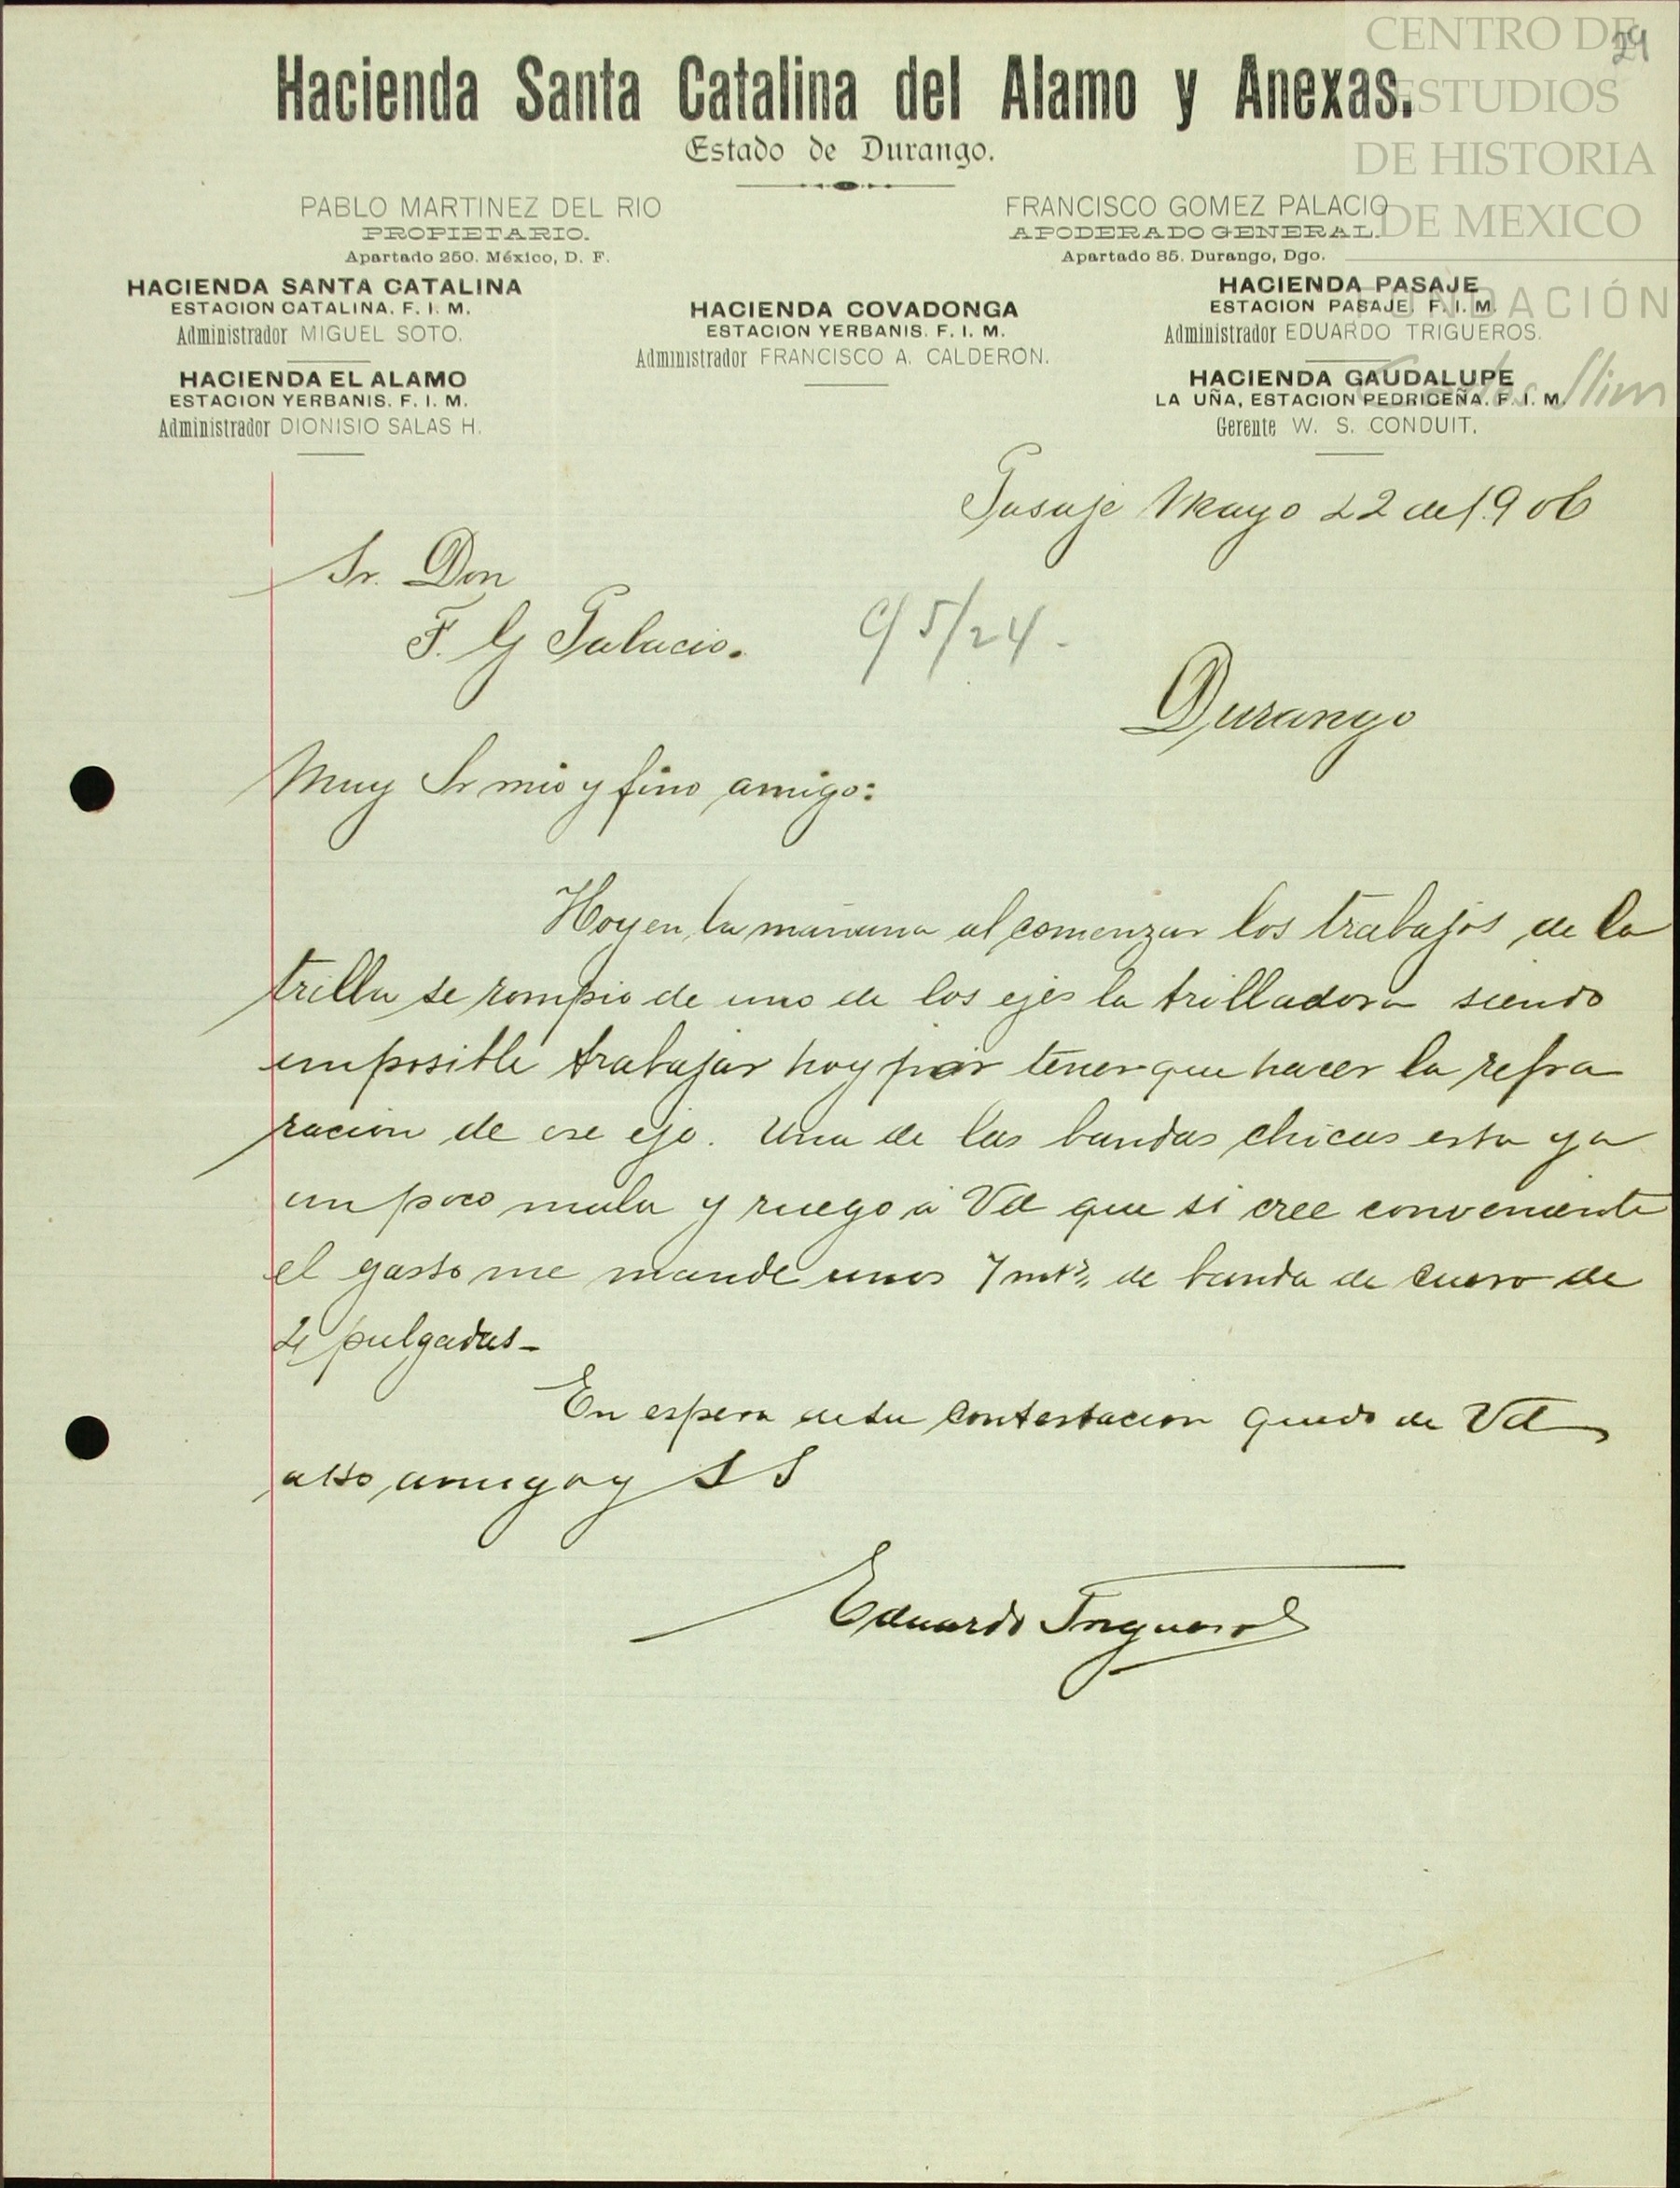 CENTRO DE
ESTUDIOS
DE HISTORIA
DE MEXICO
FUNDACIÓN
Carlos Slim
Hacienda Santa Catalina del Alamo y Anexas.
Estado de Durango.
PABLO MARTINEZ DEL RIO
PROPIETARIO.
Apartado 250. México, D. F.
FRANCISCO GOMEZ PALACIO
APODERADO GENERAL.
Apartado 85. Durango, Dgo.
HACIENDA SANTA CATALINA
ESTACION CATALINA. F. I. M.
Administrador MIGUEL SOTO.
HACIENDA EL ALAMO
ESTACION YERBANIS. F. I. M.
Administrador DIONISIO SALAS H.
HACIENDA COVADONGA
ESTACION YERBANIS. F. I. M.
Administrador FRANCISCO A. CALDERON.
HACIENDA PASAJE
ESTACION PASAJE. F. I. M.
Administrador EDUARDO TRIGUEROS.
HACIENDA GAUDALUPE
LA UÑA, ESTACION PEDRICEÑA. F. I. M.
Gerente W. S. CONDUIT.
Pasaje Mayo 22 de 1906
Sr. Don
F. G Palacio.
C/ 5/24-
Durango
Muy Sr mio y fino amigo:
Hoy en la mañana al comenzar los trabajos de la
trilla se rompio de uno de los ejes la trilladora siendo
imposible trabajar hoy por tener que hacer la repa
racion de ese eje. Una de las bandas chicas esta ya
un poco mala y ruego á Vd que si cree conveniente
el gasto me mande unos 7 mtrs de banda de cuero de
4 pulgadas-
En espera de su contestacion quedo de Vd
atto amigo y S S
Eduardo Trigueros